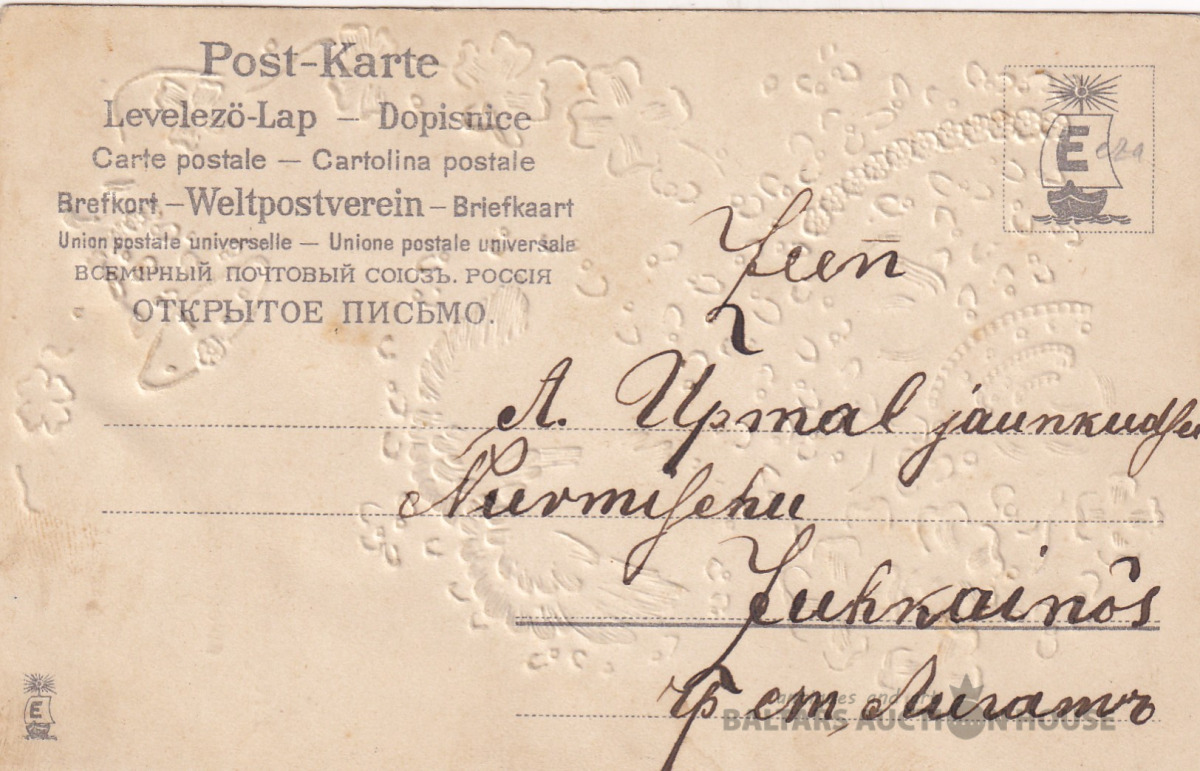 Post-Karte
Levelezö-Lap – Dopisnice
Carte postale – Cartolina postale
Brefkort – Weltpostverein – Briefkaart
Union postale universelle – Unione postale universale
ВСЕМІРНЫЙ ПОЧТОВЫЙ СОЮЗЪ. РОССІЯ
ОТКРЫТОЕ ПИСЬМО.
E
A. Upmal
ст. Лигатъ
E
BALTARS AUCTION HOUSE